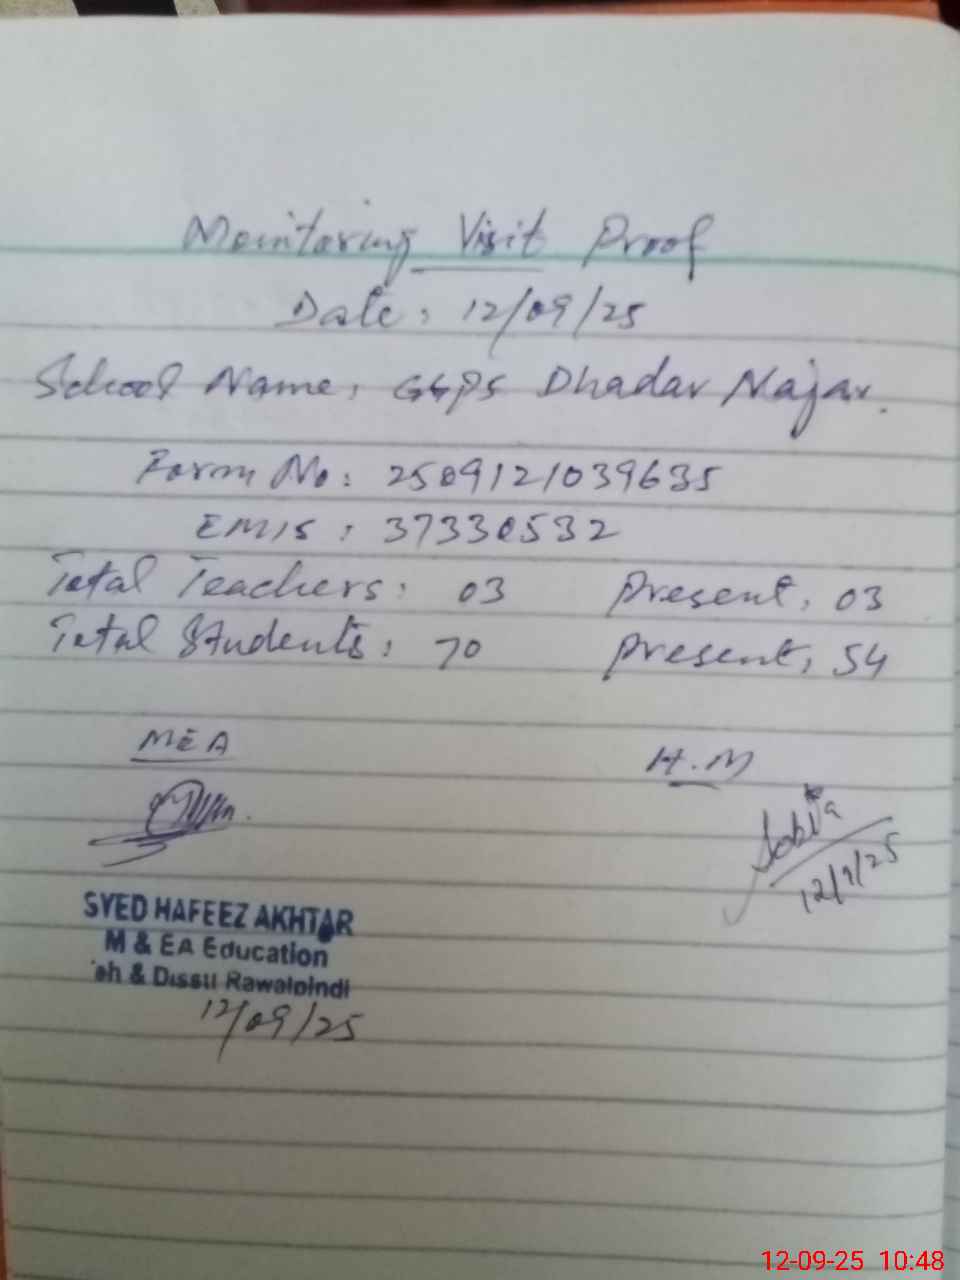 Monitoring Visit Proof
Date: 12/09/25
School Name: GGPS Dhadar Najar.
Form No: 2509121039635
EMIS: 37330532
Total Teachers: 03 Present: 03
Total Students: 70 Present: 54
MEA H.M
Sobia
12/9/25
SYED HAFEEZ AKHTAR
M & EA Education
eh & Disstt Rawalpindi
12/09/25
12-09-25 10:48